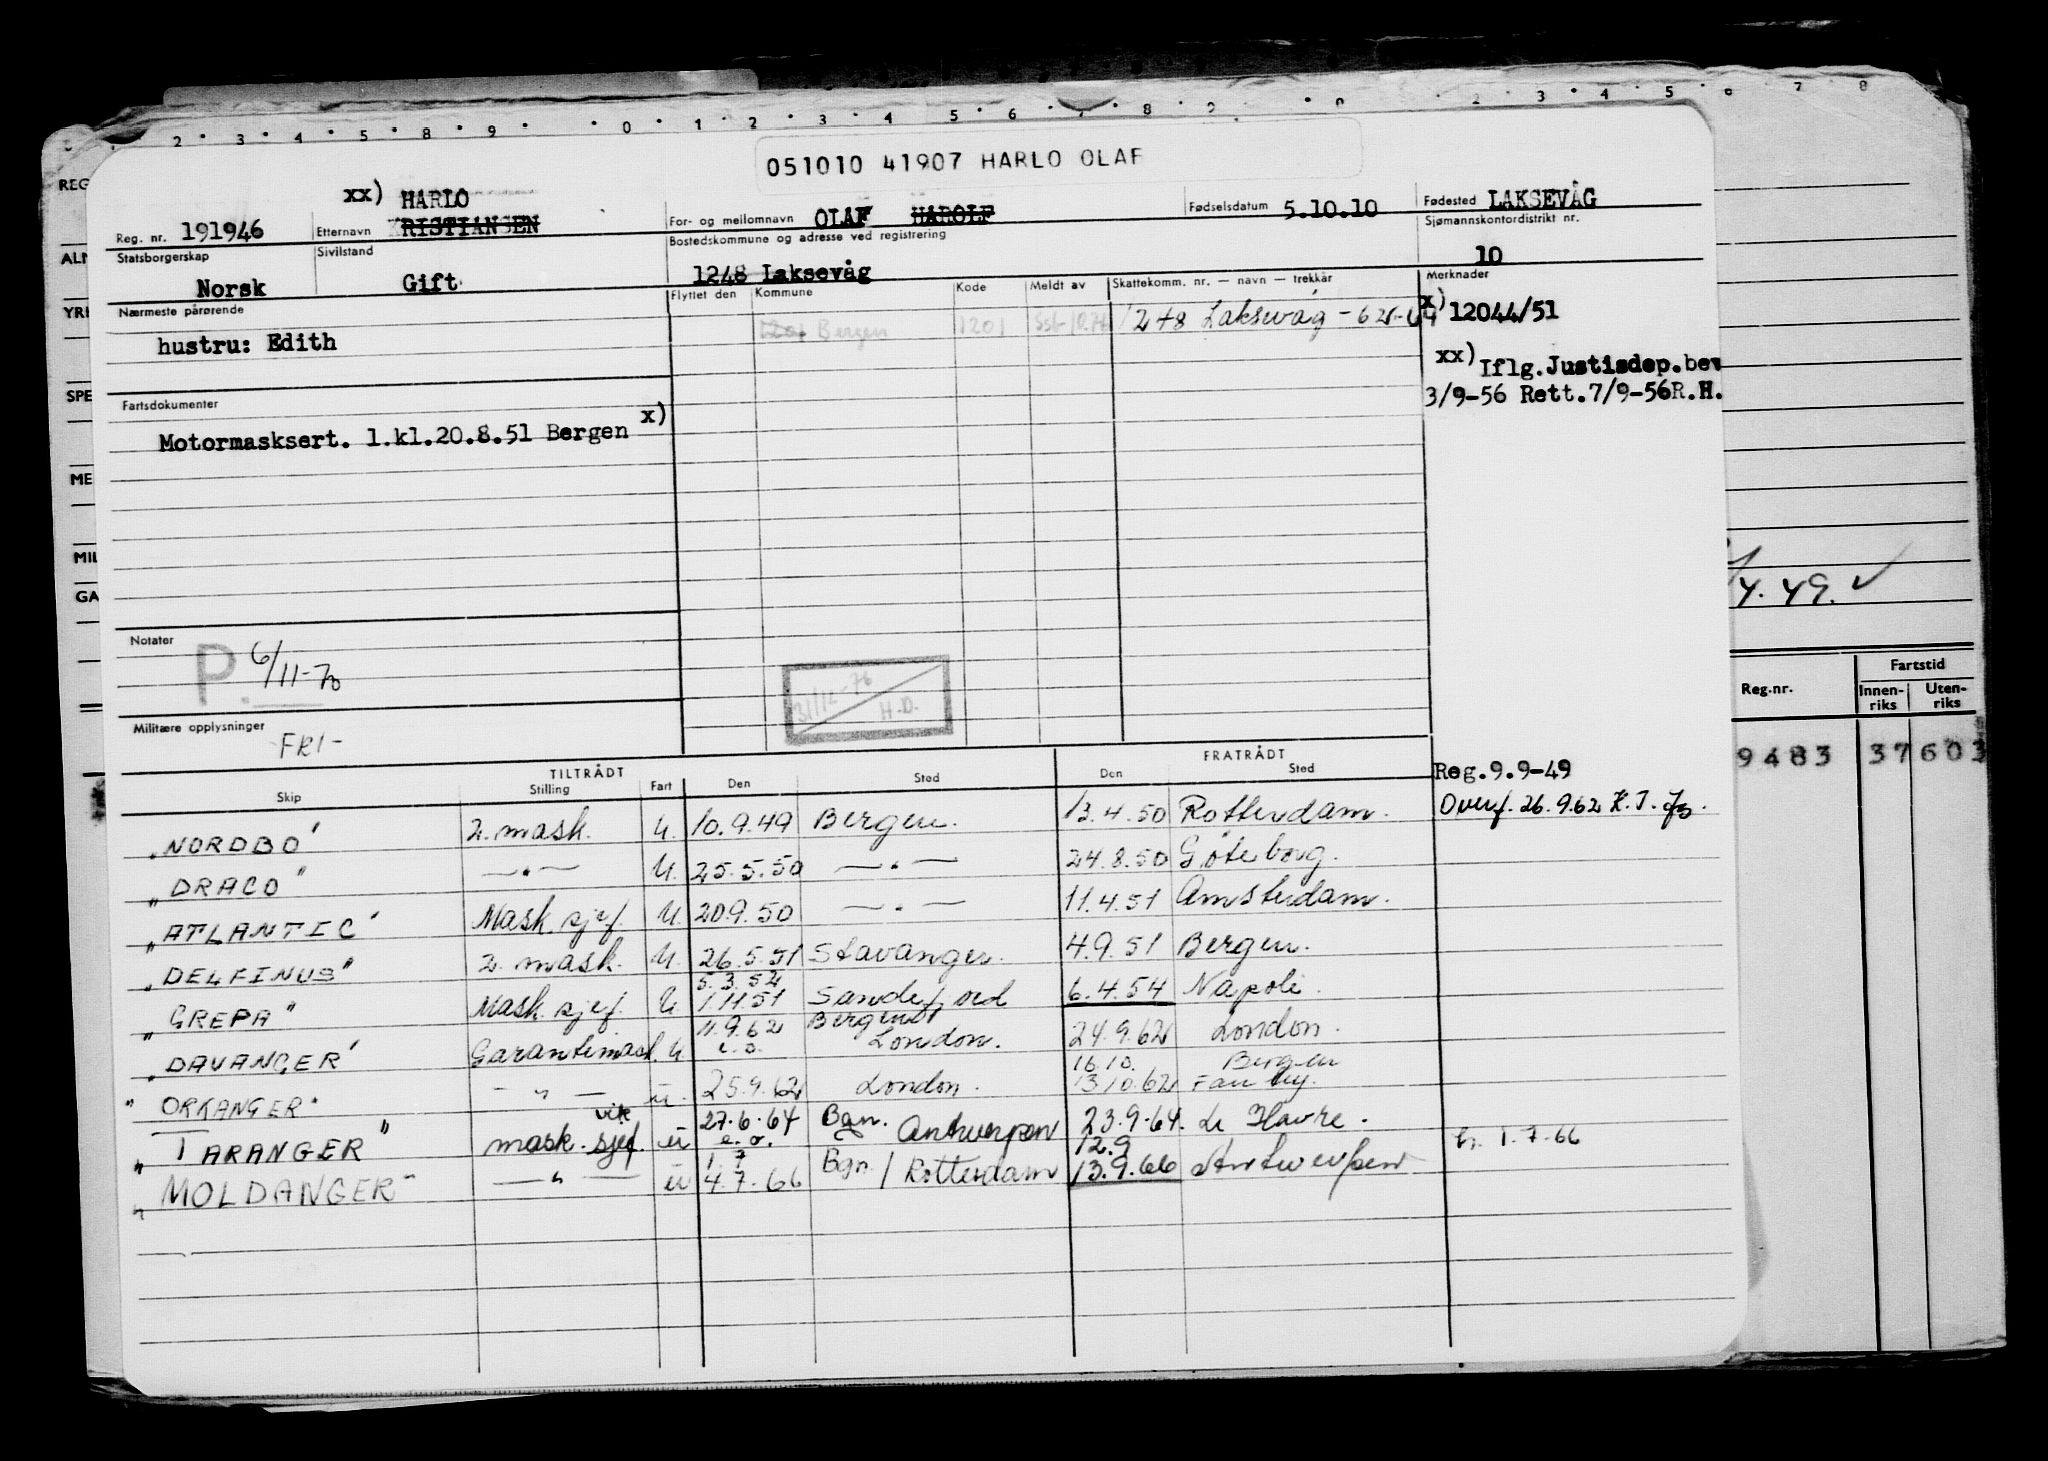 2 3 4 5 8 9 0 1 2 3 4 5 6 7 8 9 0 2 3 4 5 6 7 8
051010 41907 HARLO OLAF
xx) HARLO
Reg. nr. 191946 Etternavn KRISTIANSEN For- og mellomnavn OLAF HAROLF Fødselsdatum 5.10.10 Fødested LAKSEVÅG
Statsborgerskap Sivilstand Bostedskommune og adresse ved registrering Sjømannskontordistrikt nr.
Norsk Gift 1248 Laksevåg 10
Nærmeste pårørende Flyttet den Kommune Kode Meldt av Skattekomm. nr. — navn — trekkår Merknader
hustru: Edith 1201 Bergen 1201 1248 Laksevåg - 62-64 x) 12044/51
xx) Iflg.Justisdep.bev
3/9-56 Rett.7/9-56R.H.
Fartsdokumenter
Motormasksert. 1.kl.20.8.51 Bergen x)
Notater
P. 6/11-70
31/12-76
H.D.
Militære opplysninger
FRI-
TILTRÅDT FRATRÅDT
Skip Stilling Fart Den Sted Den Sted
Reg.9.9-49
"NORDBO" 2. mask. U. 10.9.49 Bergen. 13.4.50 Rotterdam. Overf. 26.9.62 K.J.
"DRACO" —"— U. 25.5.50 —"— 24.8.50 Göteborg.
"ATLANTIC" Mask. sjef. U. 20.9.50 —"— 11.4.51 Amsterdam.
"DELFINUS" 2. mask. U. 26.5.51 Stavanger. 4.9.51 Bergen.
5.3.52
"GREPA" Mask. sjef. U 1.11.51 Sandefjord 6.4.54 Napoli.
"DAVANGER" Garantimask. U 11.9.62 e.o. Bergen/London. 24.9.62 London.
16.10. Bergen
"ORKANGER" — " — u. 25.9.62 London. 13.10.62
"TARANGER" vik mask. sjef. u 27.6.64 e.o. Bgn. Antwerpen 23.9.64. Le Havre.
1.7 12.9
"MOLDANGER" — " — u 4.7.66 Bgn / Rotterdam 13.9.66 Antwerpen 1.7.66
REG
ALM
YRK
SPE
ME
MIL
GA
4.49. ✓
Reg.nr. Fartstid
Innen-riks Uten-riks
9483 37 603